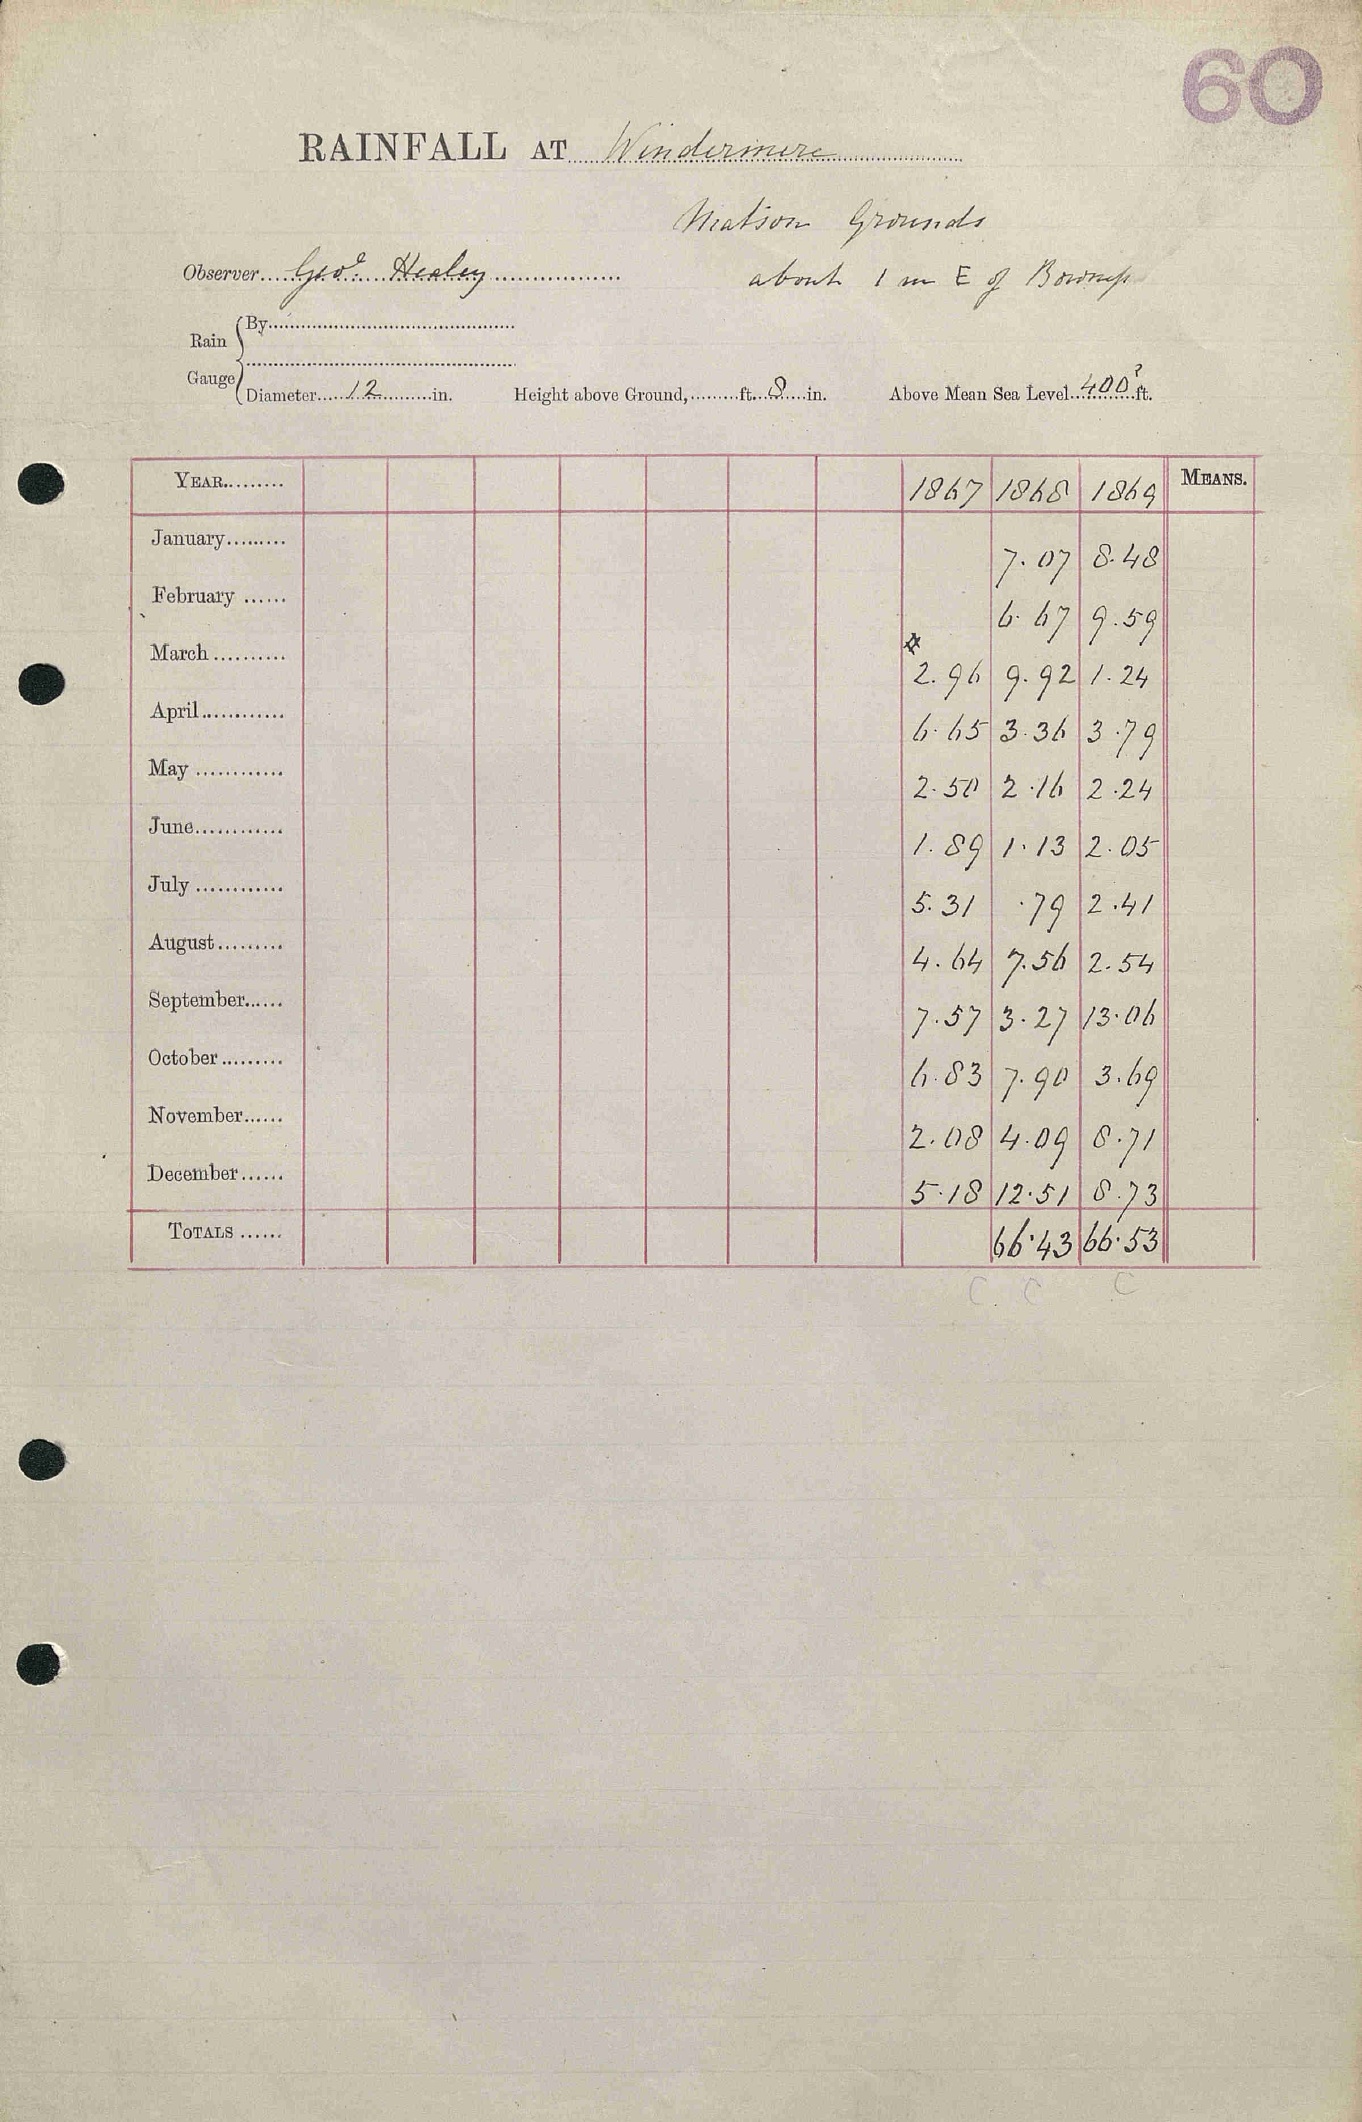 60
RAINFALL AT Windermere
Matson Grounds
Observer Geo. Healey
about 1 m E of Bowness
Rain Gauge
By
Diameter 12 in. Height above Ground, ft. 8 in. Above Mean Sea Level 400? ft.
YEAR 1867 1868 1869 MEANS.
January 7.07 8.48
February 6.67 9.59
☆
March 2.96 9.92 1.24
April 6.65 3.36 3.79
May 2.50 2.16 2.24
June 1.89 1.13 2.05
July 5.31 .79 2.41
August 4.64 7.56 2.54
September 7.57 3.27 13.06
October 6.83 7.90 3.69
November 2.08 4.09 8.71
December 5.18 12.51 8.73
TOTALS 66.43 66.53
C C C